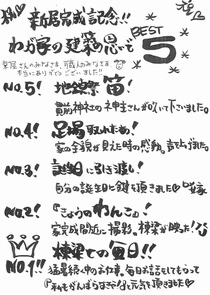 祝 新居完成記念!!
わが家の建築思い出
BEST
5
業者さんのみなさま、職人のみなさま
本当にありがとうございました!!
NO.5! 地鎮祭!
貫前神社の神主さんが吹いて下さいました。
NO.4! 足場取れる!
家の全貌が見えた時の感動。声をあげました。
NO.3! 誕生日に引き渡し!
自分の誕生日に鍵を頂きました♡
NO.2! 『きょうのわんこ』!
家完成間近に撮影。棟梁が映った!!
NO.1!! 棟梁での毎日!!
猛暑続きの中お仕事。毎日お話をしてもらって
『私もがんばらなきゃ!』と元気を頂きました♡